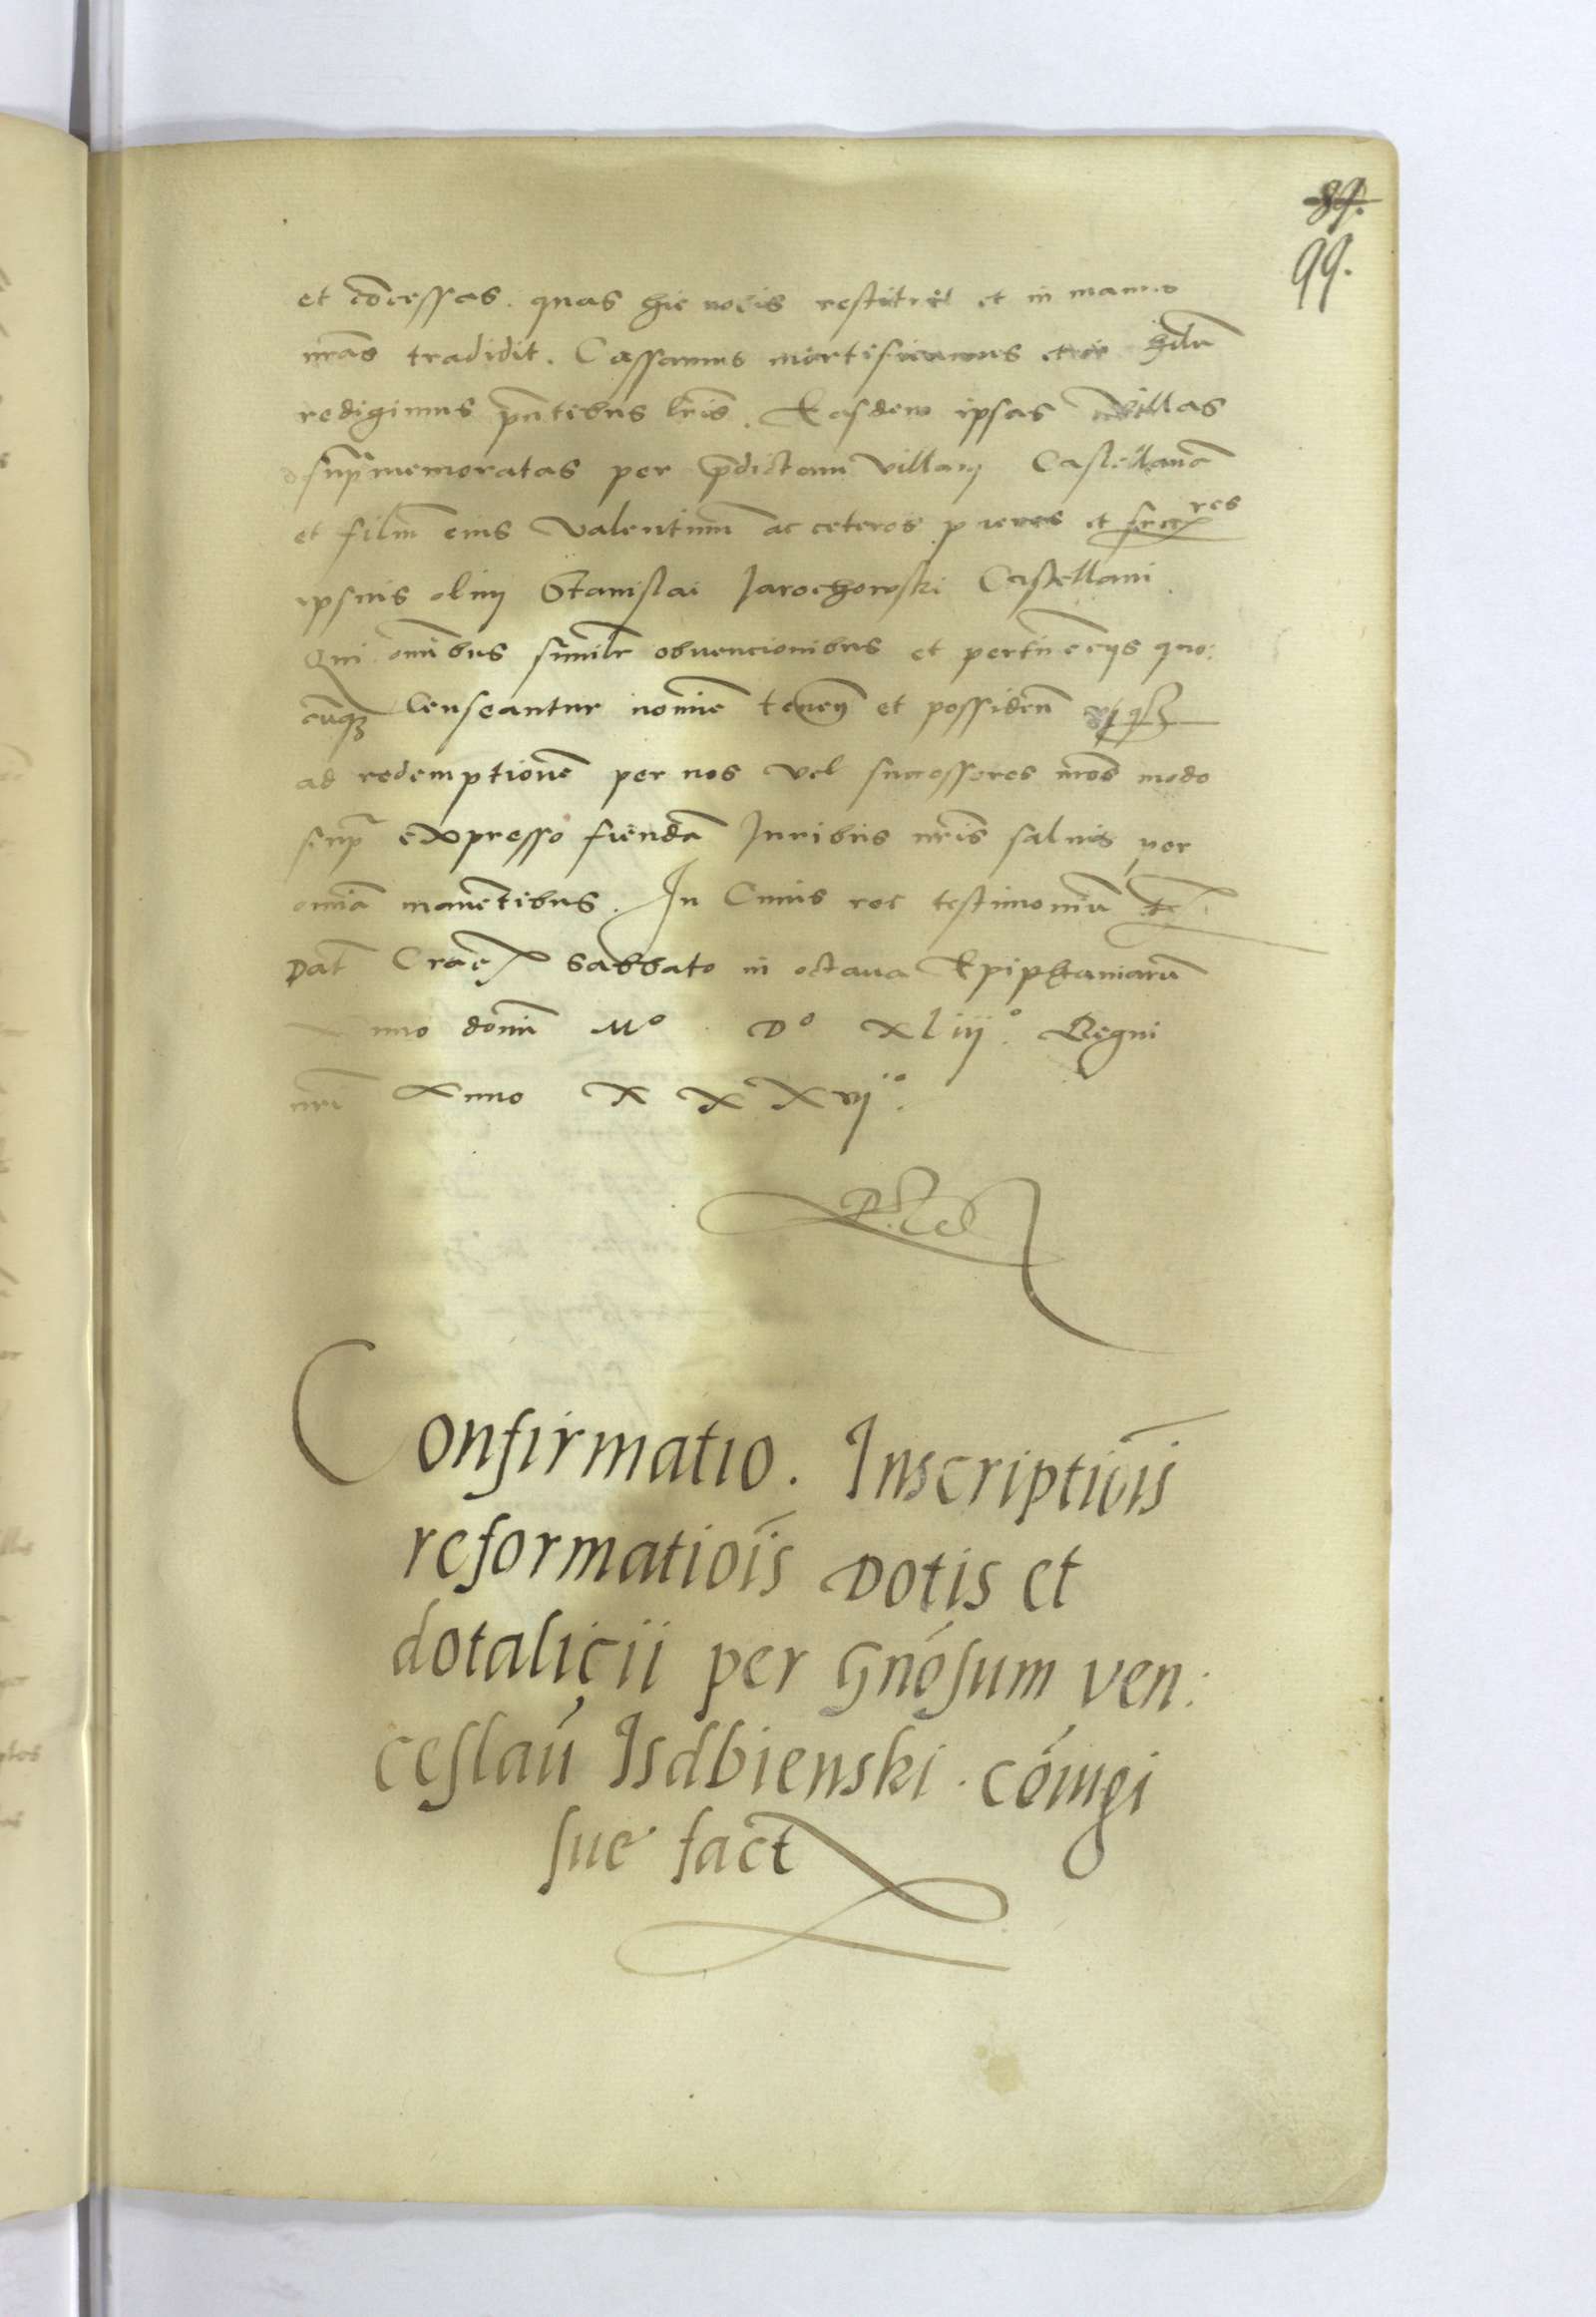 89.
99.
et cōcessas. quas hic nobis restituit et in manus
nrās tradidit. Cassamus mortificamus et in
redigimus pn̄tibus lrīs. Easdem ipsas villas
supramemoratas per p̄dictam Castellanā
et filiū eius Valentinū ac ceteros pueros et
ipsius olim Stanislai Jarochowski Castellani
omībus obuencionibus et pertinēcijs quo:
cūq̄ censeantur nomine tenen̄ et possiden̄
ad redemptionē per nos vel successores nrōs modo
supra expresso fiendā Juribus nrīs saluis per
omnia manētibus. In Cuius rei testimoniū
Dat̄ Crac̄ Sabbato in octaua Epiphaniarū
Anno domī Mº Dº xliijº. Regni
nrī Anno XXXvjº.
Confirmatio. Inscriptiōis
reformatiōis Dotis et
dotalicii per Gnōsum ven:
ceslaū Isdbienski. cōiugi
sue fact